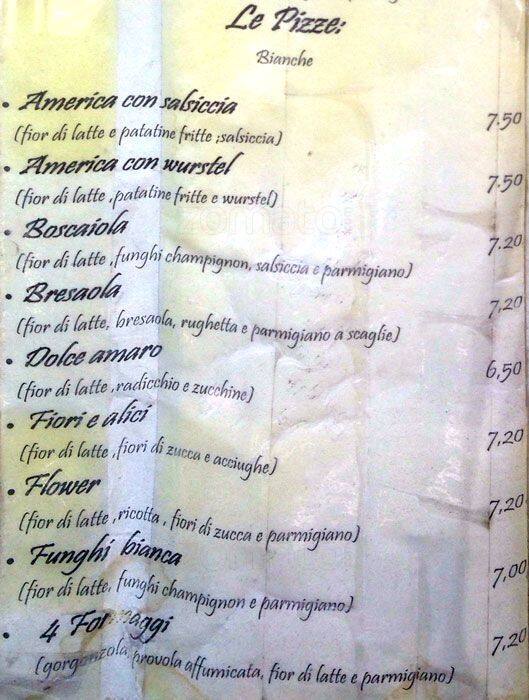 Le Pizze:
Bianche
• America con salsiccia 7.50
(fior di latte e patatine fritte ;salsiccia)
• America con wurstel 7.50
(fior di latte ,patatine fritte e wurstel)
zomato
• Boscaiola 7.20
(fior di latte ,funghi champignon, salsiccia e parmigiano)
• Bresaola 7,20
(fior di latte, bresaola, rughetta e parmigiano a scaglie)
• Dolce amaro 6,50
(fior di latte ,radicchio e zucchine)
• Fiori e alici 7,20
(fior di latte ,fiori di zucca e acciughe)
• Flower 7,20
(fior di latte ,ricotta , fiori di zucca e parmigiano)
• Funghi bianca 7,00
(fior di latte, funghi champignon e parmigiano)
• 4 Formaggi 7,20
(gorgonzola, provola affumicata, fior di latte e parmigiano)